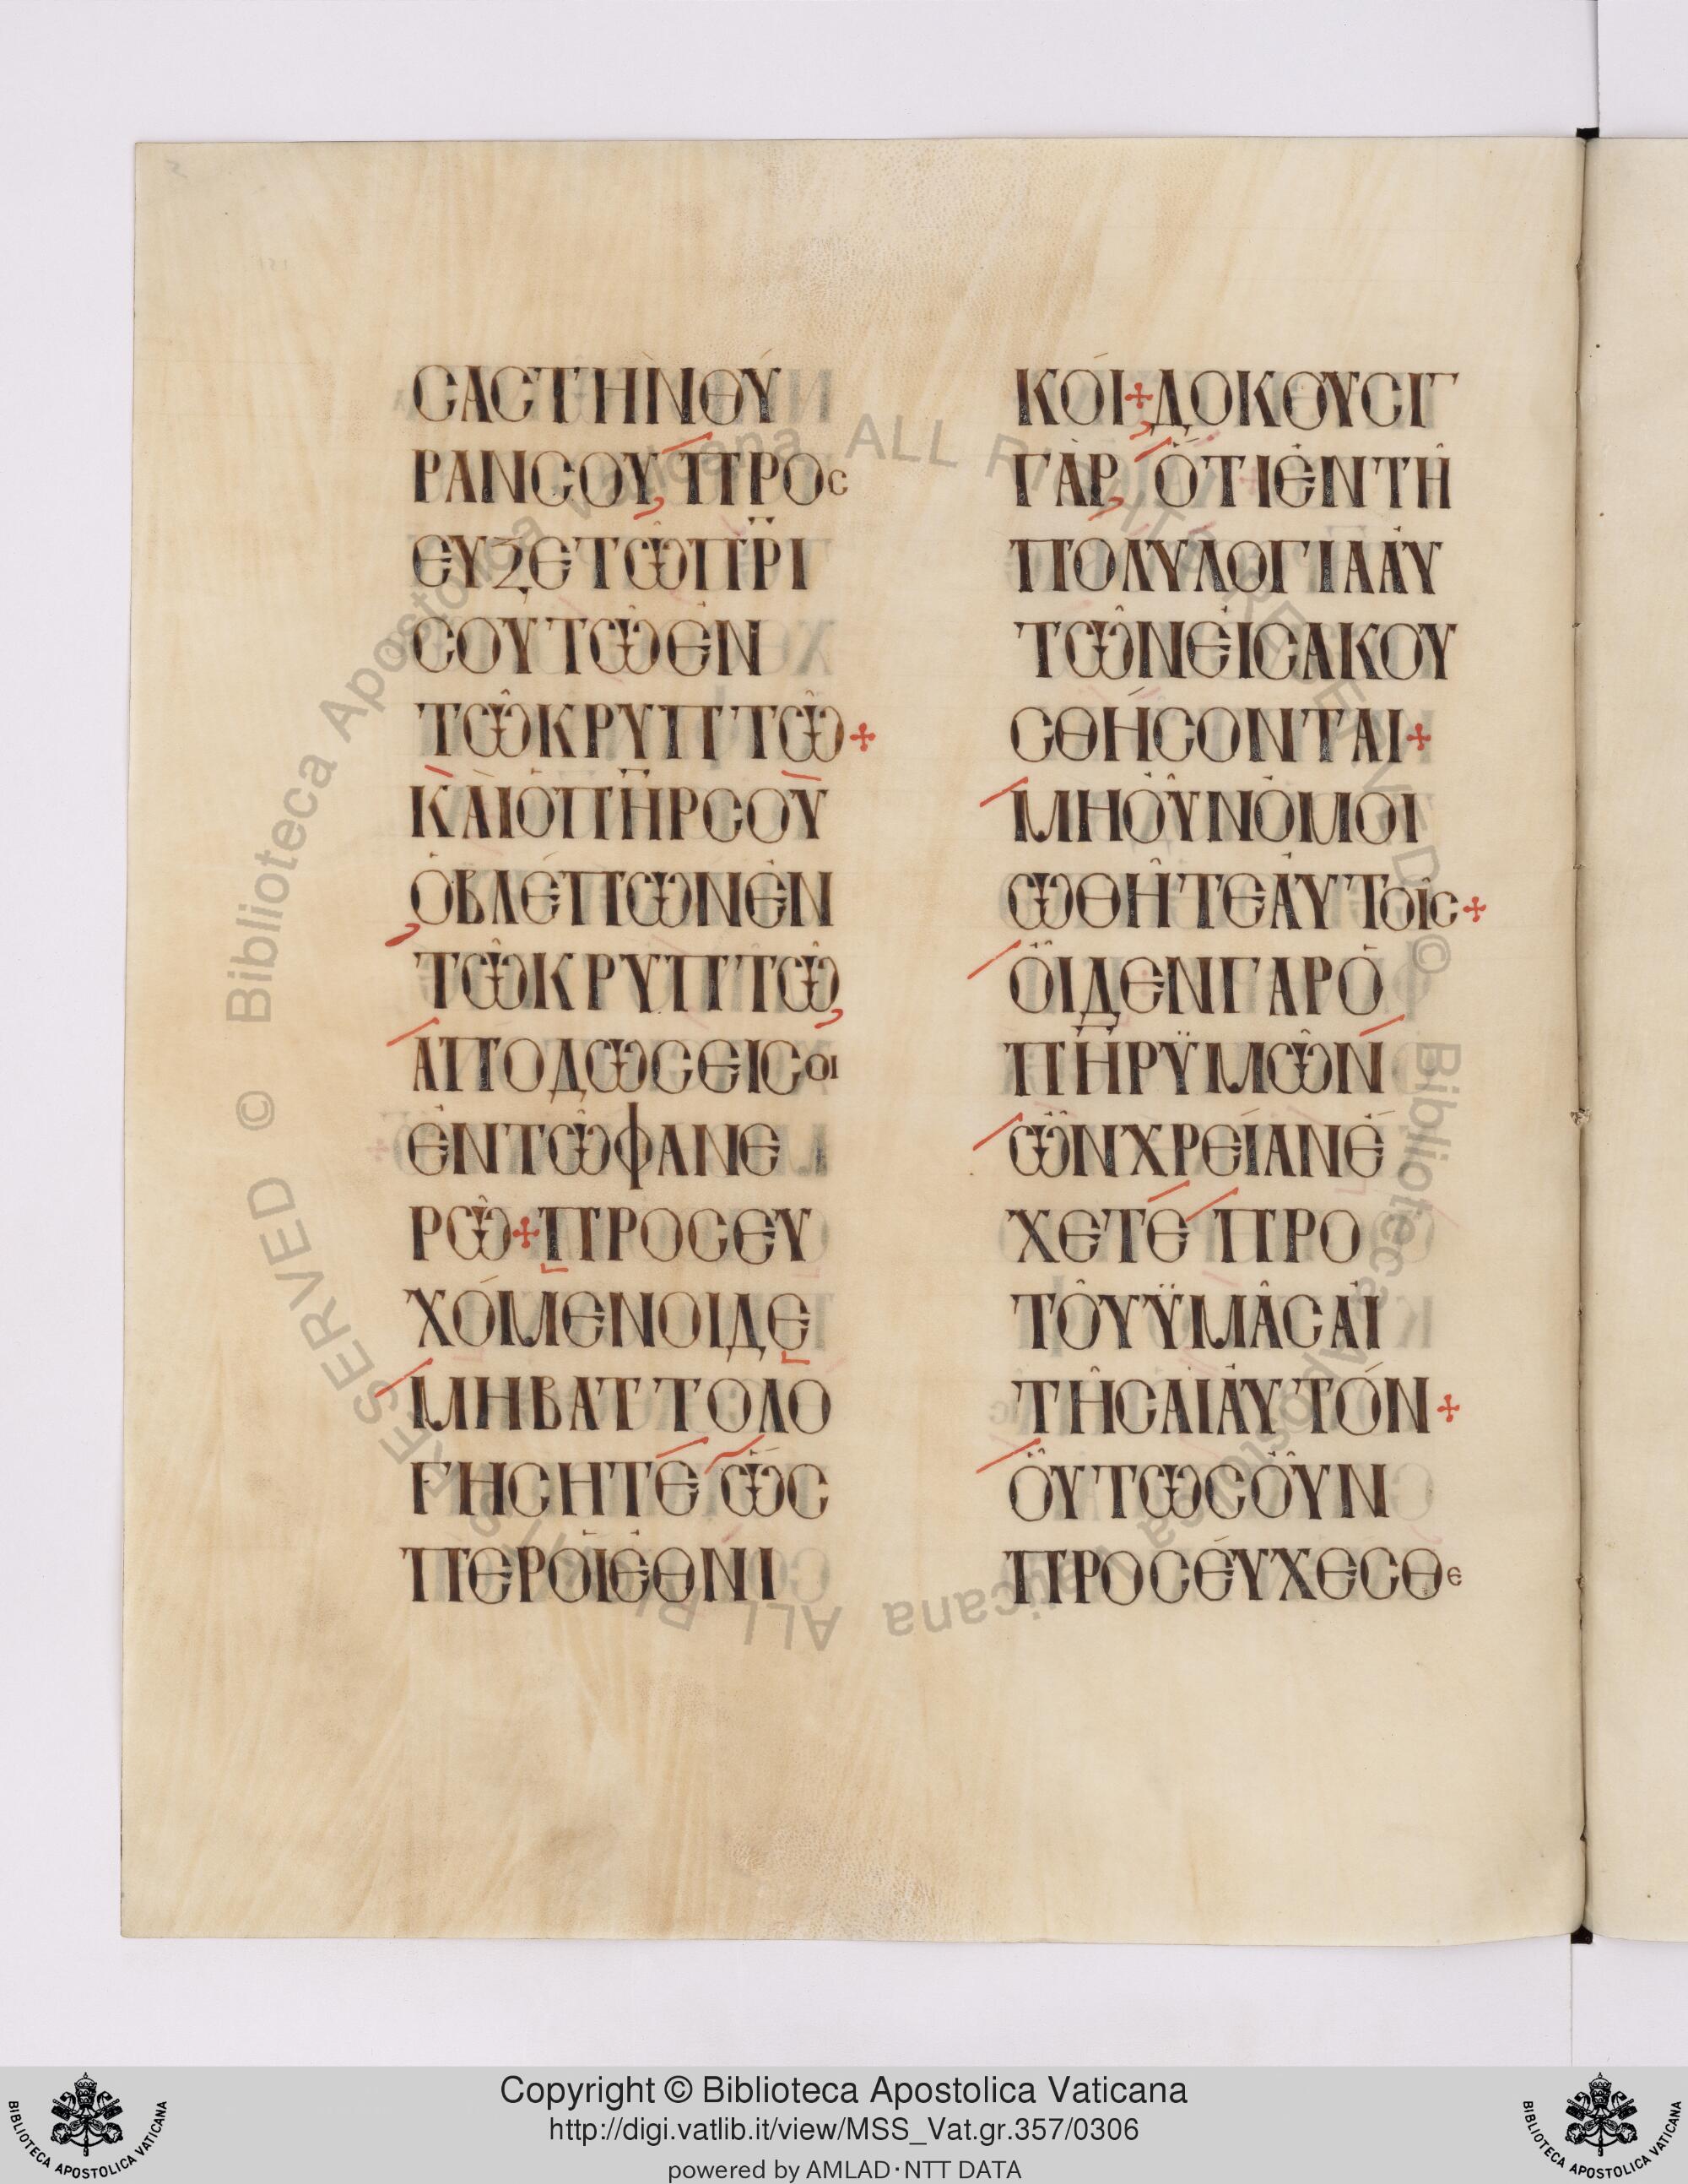 ϹΑϹΤῊΝΘΎ
ΡΑΝϹΟΥ ΠΡΟϹ
ΕΥΞΕΤῶΠΡΙ
ϹΟΥΤῶἘΝ
Τῶ ΚΡΥΠΤῶ+
ΚΑῚὉΠΗΡϹΟΥ
ὉΒΛΈΠωΝἘΝ
Τῶ ΚΡΥΠΤῶ
ἈΠΟΔώϹΕΙϹΟΙ
ἘΝΤῶΦΑΝΕ
Ρῶ+ΠΡΟϹΕΥ
ΧΌΜΕΝΟΙΔΕ
ΜΗΒΑΤΤΟΛΟ
ΓΗϹΗΤΕ ὥϹ
ΠΕΡΟἹἘΘΝΙ
ΚΟΊ+ΔΟΚΟΥϹΙΓ
ΓᾺΡ ὍΤΙἘΝΤΗ͂
ΠΟΛΥΛΟΓΊΑἈΥ
Τῶ͂ΝΕἸϹΑΚΟΥ
ϹΘΉϹΟΝΤΑΙ+
ΜΗΟὖΝὉΜΟΙ
ωΘΗ͂ΤΕἈΥΤΟΙ͂Ϲ+
ΟἾΔΕΝΓΑΡὉ
ΠΗΡΫΜῶΝ
ὧΝΧΡΕΊΑΝἜ
ΧΕΤΕ ΠΡΟ
ΤΟΥ͂ΫΜΑ͂ϹΑἸ
ΤΗ͂ϹΑΙἈΥΤΌΝ+
ΟὝΤωϹΟὖΝ
ΠΡΟϹΕΎΧΕϹΘΕ
Copyright © Biblioteca Apostolica Vaticana
http://digi.vatlib.it/view/MSS_Vat.gr.357/0306
powered by AMLAD·NTT DATA
BIBLIOTECA APOSTOLICA VATICANA
BIBLIOTECA APOSTOLICA VATICANA
© Biblioteca Apostolica Vaticana ALL RIGHTS RESERVED
© Biblioteca Apostolica Vaticana ALL RIGHTS RESERVED